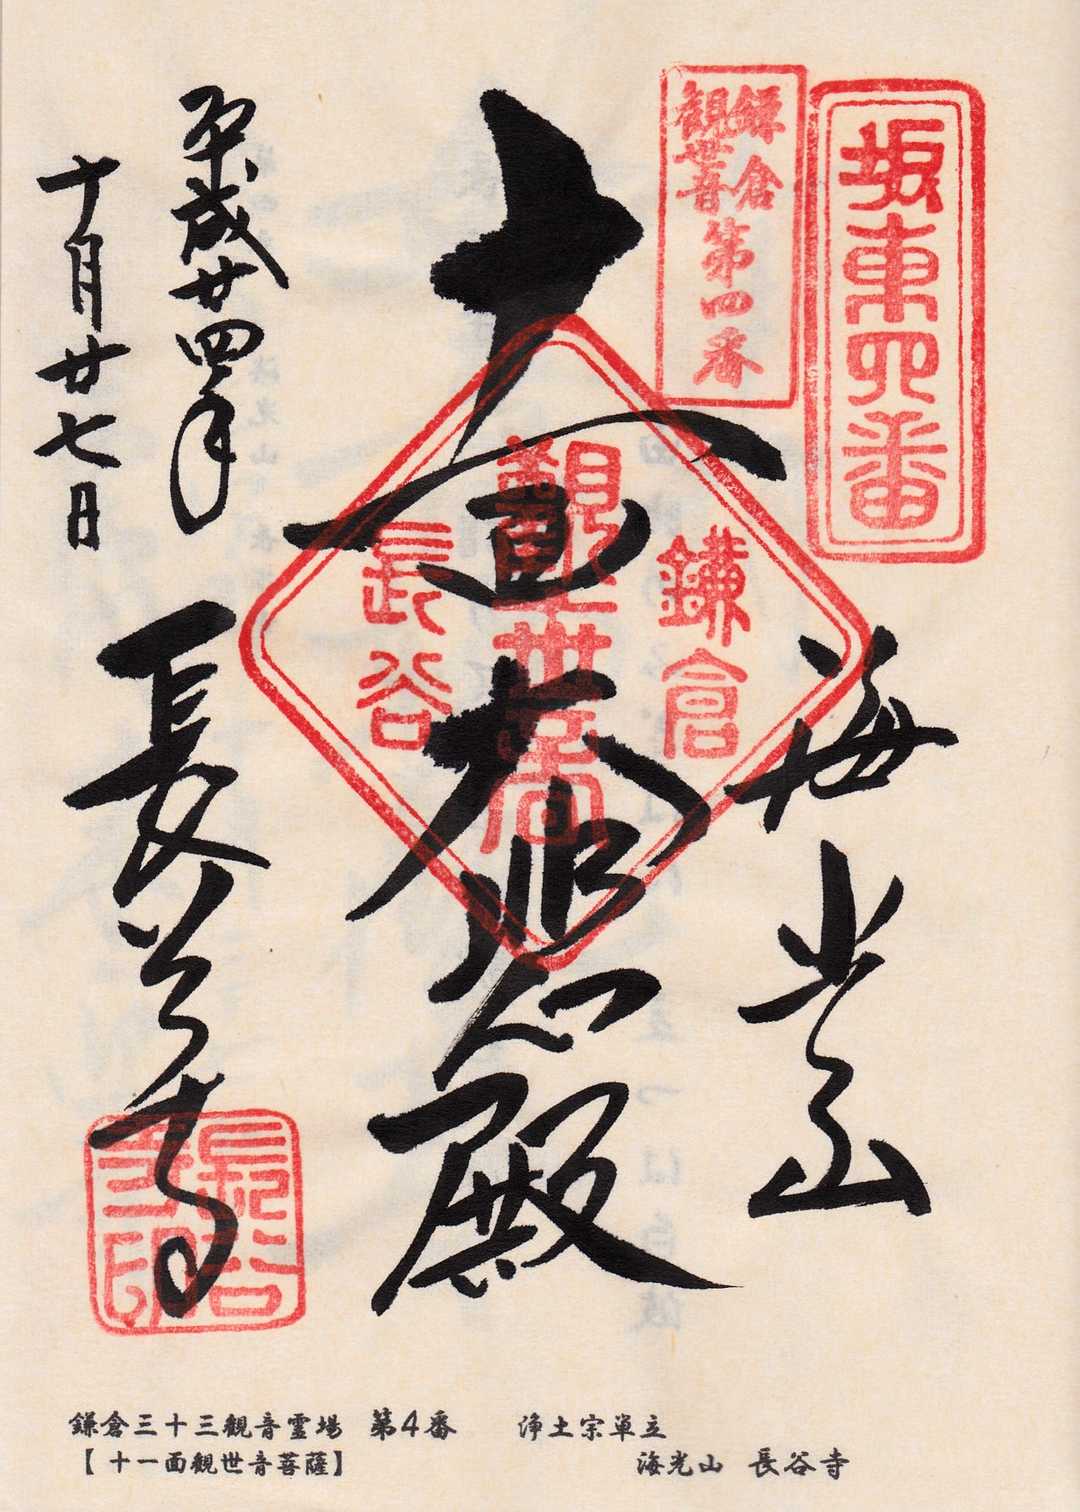 坂東四番
鎌倉
観世音
第四番
海光山
十一面
大悲殿
鎌倉
観世音
長谷
平成廿四年
十月廿七日
長谷寺
長谷
寺印
鎌倉三十三観音霊場 第4番
【 十一面観世音菩薩】
浄土宗単立
海光山 長谷寺